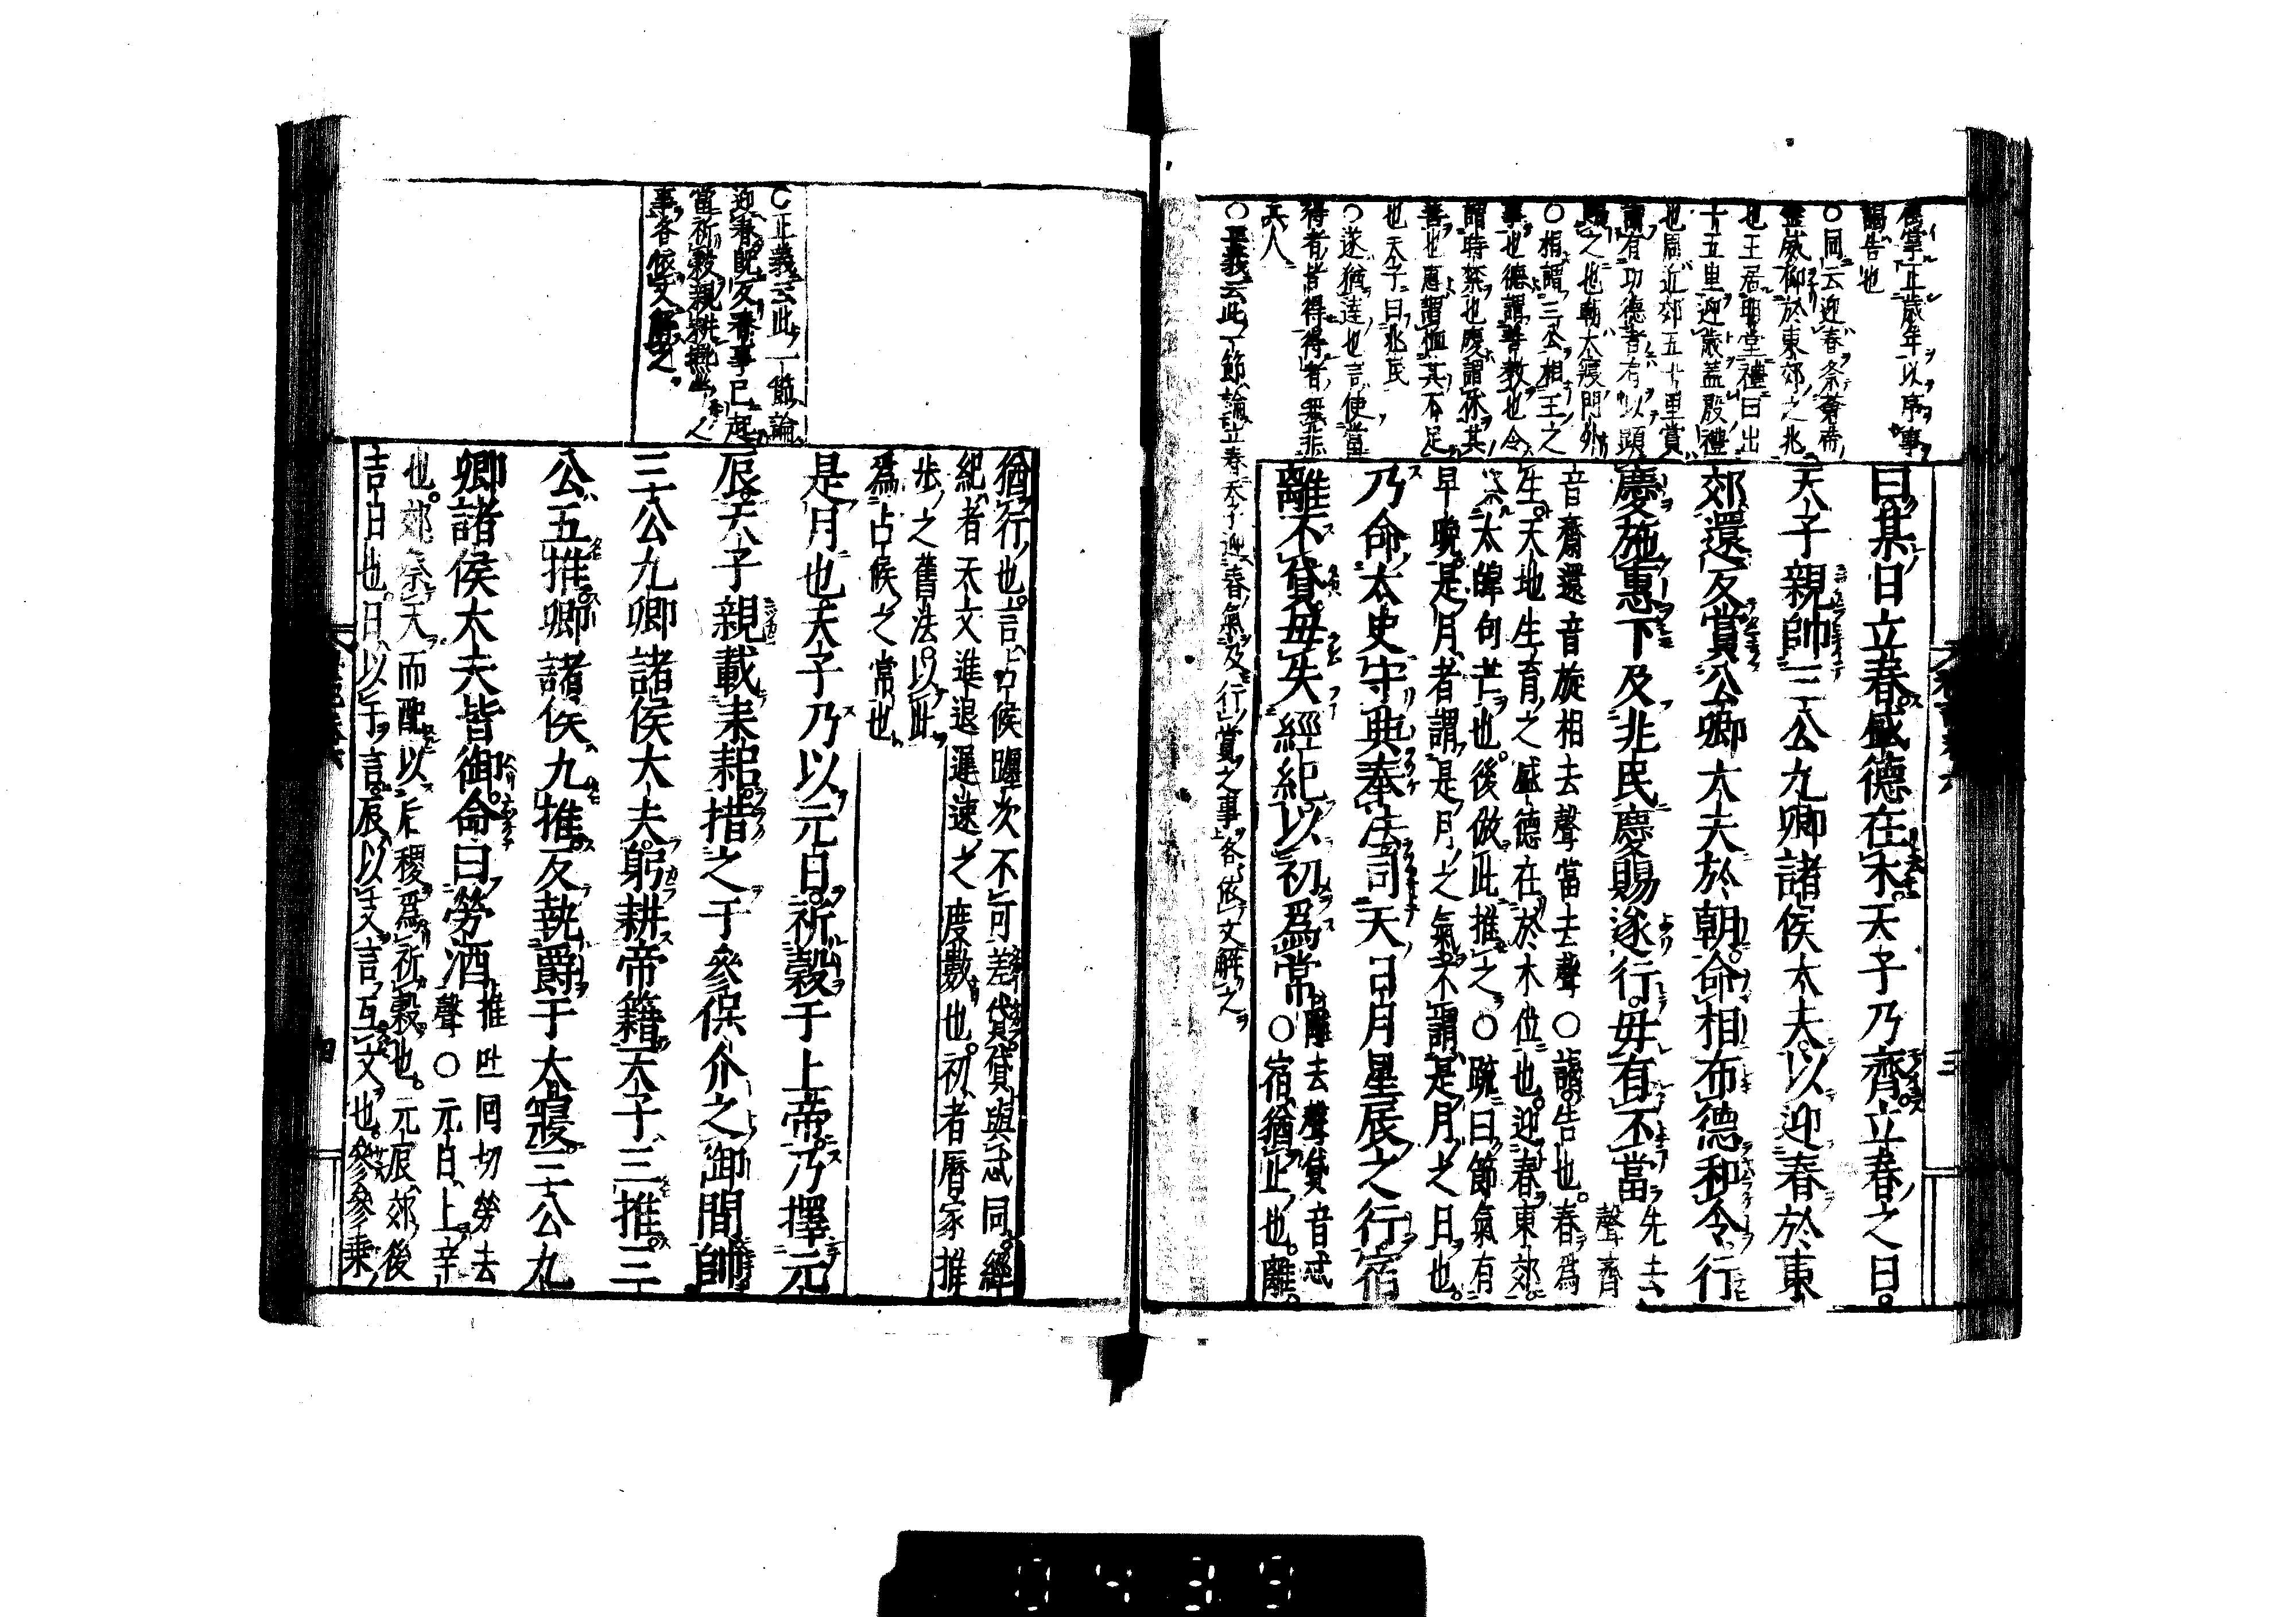 禮掌正歲年以序事
謁告也
○同云迎春祭蒼帝
靈威仰於東郊之兆
也王居明堂禮曰出
十五里迎歲蓋殷禮
也周近郊五十里賞
謂有功德者有以顯
賜之也朝大寢門外
○相謂三公相王之
事也德謂善教也令
謂時禁也慶謂休其
善也惠謂恤其不足
也天子曰兆民
○遂猶達也言使當
得者皆得得者無非
其人
○正義云此一節論立春天子迎春氣及行賞之事各依文解之
曰某日立春盛德在木天子乃齊立春之日
天子親帥三公九卿諸侯大夫以迎春於東
郊還反賞公卿大夫於朝命相布德和令行
慶施惠下及兆民慶賜遂行毋有不當先去
聲齊
音齋還音旋相去聲當去聲○謁告也春爲
生天地生育之盛德在於木位也迎春東郊
祭太皥句芒也後倣此推之○疏曰節氣有
早晚是月者謂是月之氣不謂是月之日也
乃命太史守典奉法司天日月星辰之行宿
離不貸毋失經紀以初爲常離去聲貸音忒
○宿猶止也離
猶行也言占候躔次不可差貸貸與忒同經
紀者天文進退遲速之度數也初者曆家推
步之舊法以此
爲占候之常也
○正義云此一節論
迎春既反春事已起
當祈穀親耕
事各依文解之
是月也天子乃以元日祈穀于上帝乃擇元
辰天子親載耒耜措之于參保介之御間帥
三公九卿諸侯大夫躬耕帝籍天子三推三
公五推卿諸侯九推反執爵于大寢三公九
卿諸侯大夫皆御命曰勞酒推吐回切勞去
聲○元日上辛
也郊祭天而配以后稷爲祈穀也元辰郊後
吉日也日以干言辰以支言互文也參參乘
三
四
0439